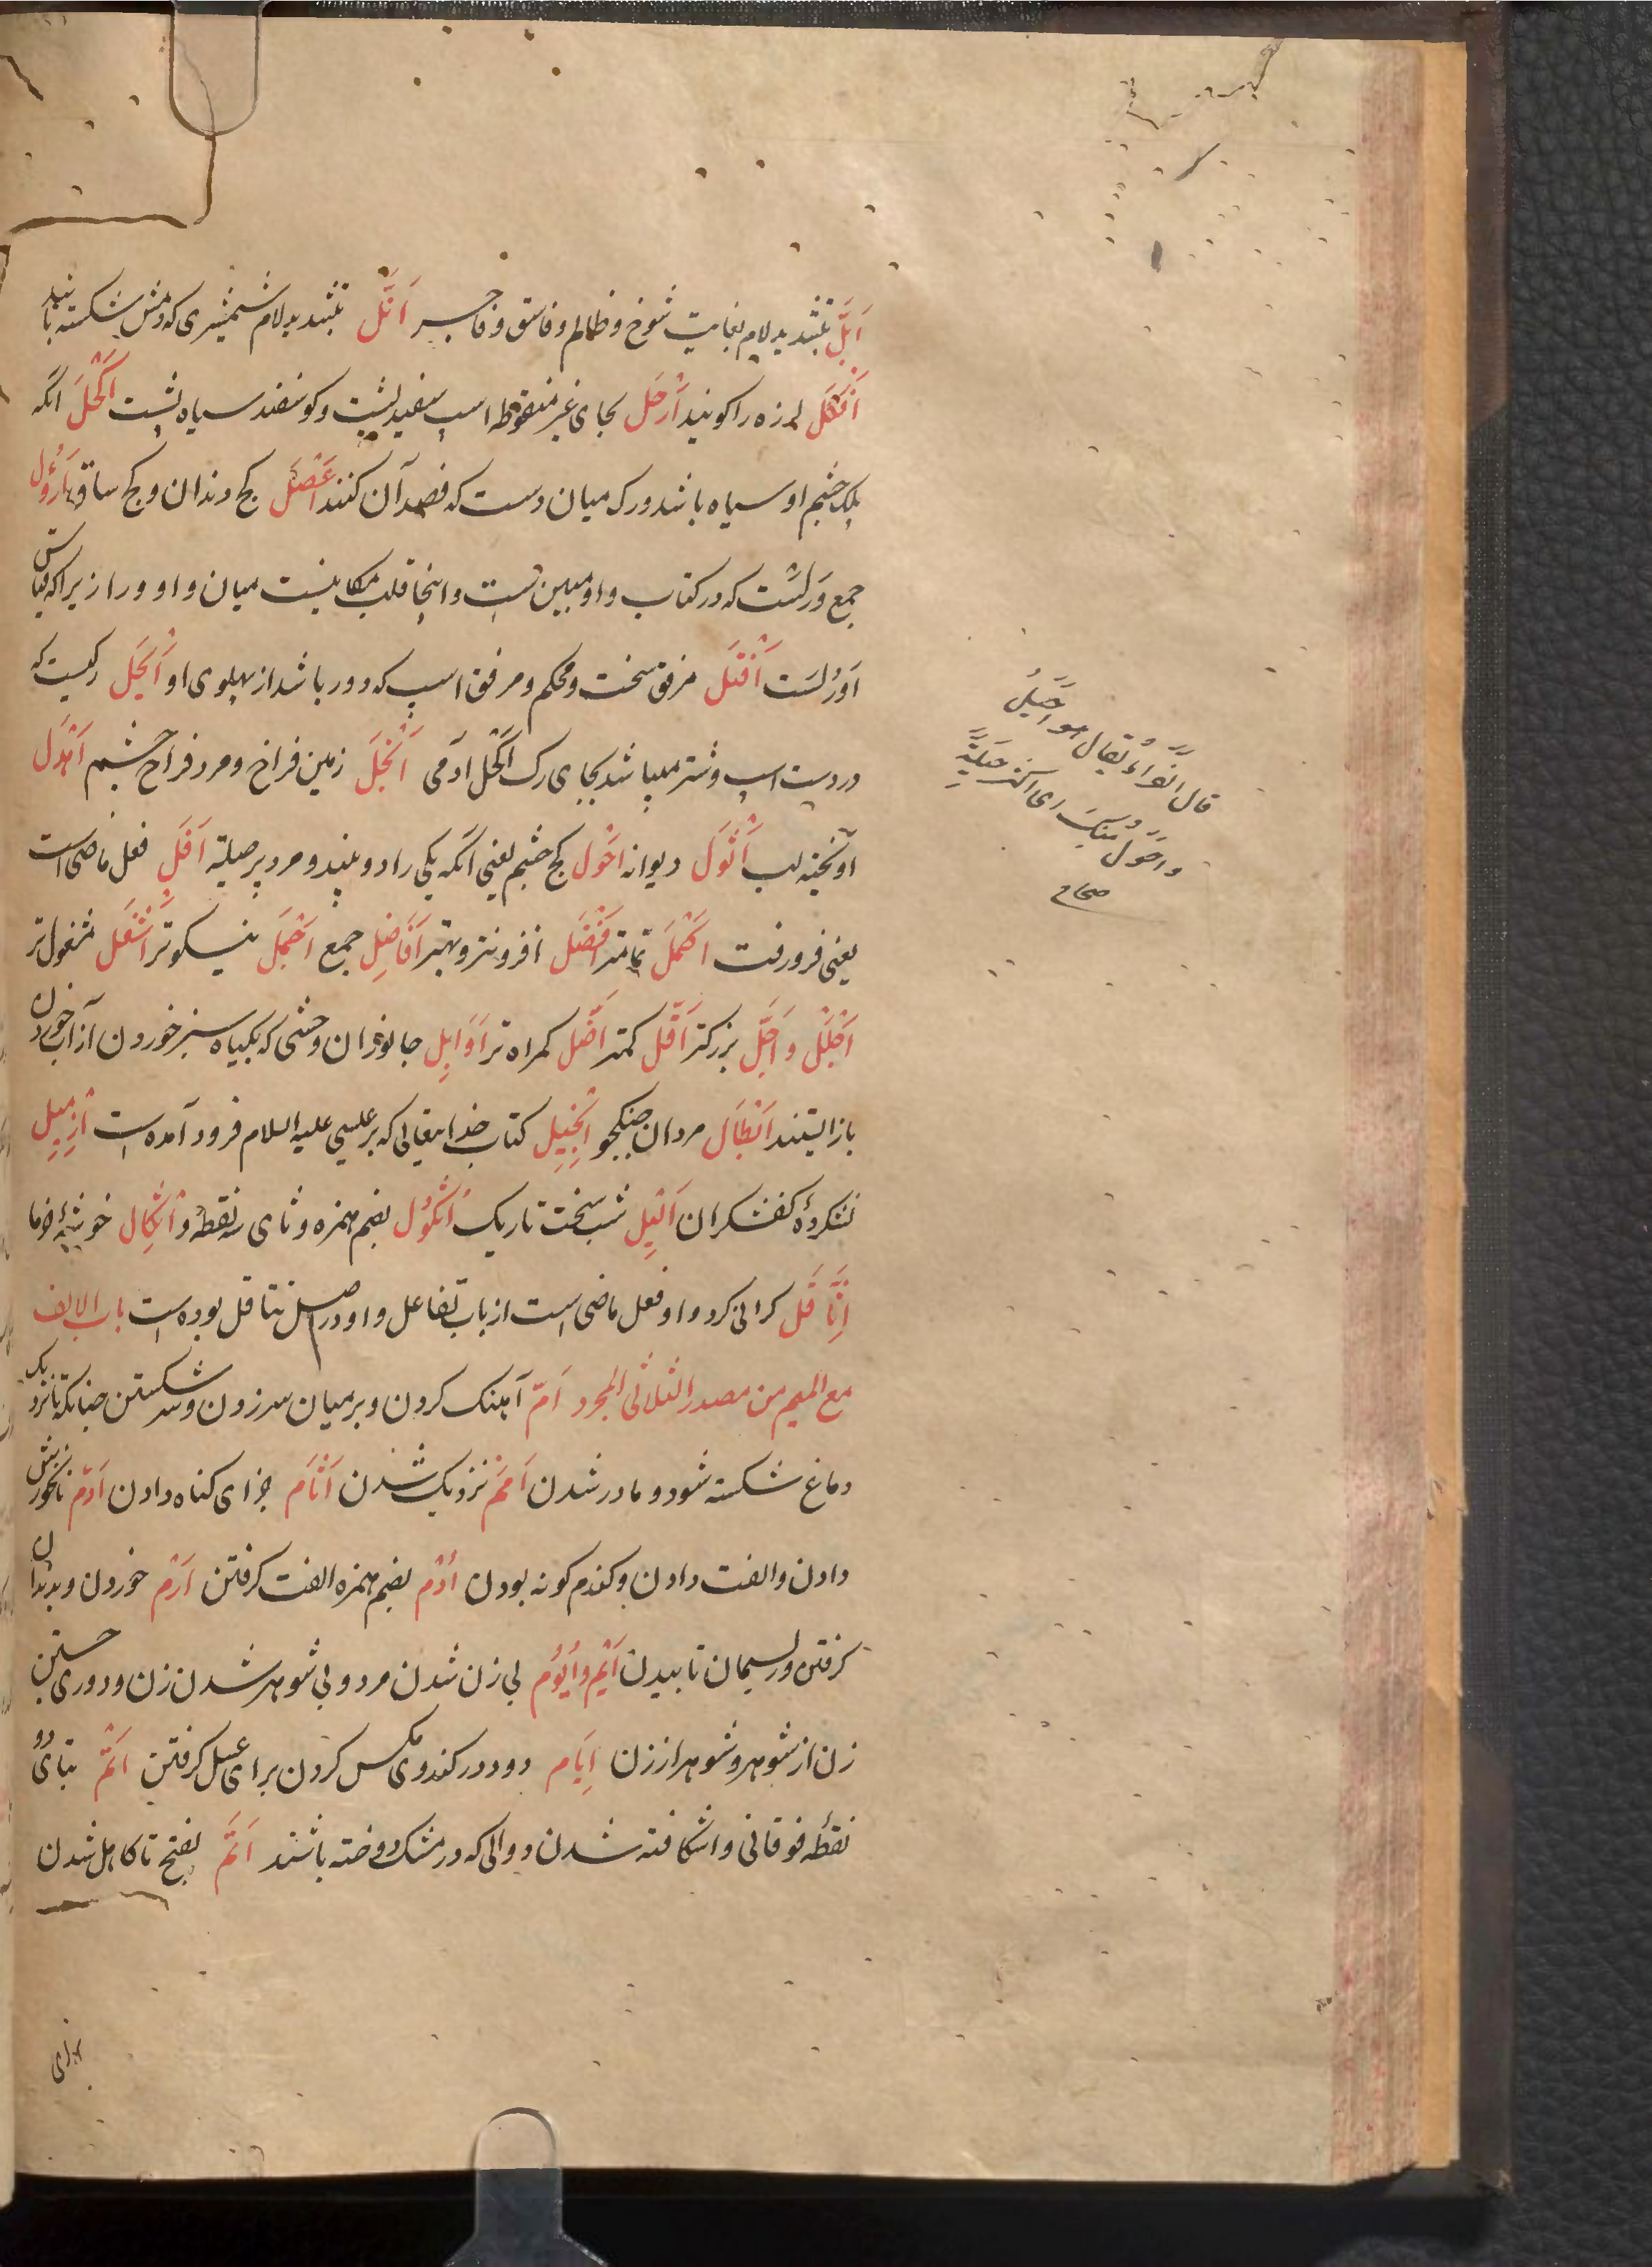 اَبَلّ بتشدید لام بغایت شوخ و ظالم و فاسق و فاجر اَفَلّ بتشدید لام شمشیری که دمش شکسته باشد
اَفکَل لرزه را کویند اَرْحَل بحای غیر منقوطه اسپ سفید پشت و کوسفند سیاه پشت اَکْحَل انکه
پلک چشم او سیاه باشد و رک میان دست که فصد آن کنند اَعْصَل کج دندان و کج ساق اَرْوُل
جمع وَرَلست که در کتاب واو مبین است و اینجا قلب مکانیست میان واو و را زیرا که قیاس
اَوْرُلست اَفْتَل مرفق سخت و محکم و مرفق اسپ که دور باشد از پهلوی او اَبْجَل رکیست که
در دست اسپ و شتر میباشد بجای رک اَکْحَل آدمی اَنْجَل زمین فراخ و مرد فراخ چشم اَهْدَل
آویخته لب اَثْوَل دیوانه اَحْوَل کج چشم یعنی انکه یکی را دو بیند و مرد پر حیله اَفَلَ فعل ماضی است
یعنی فرو رفت اَکْمَل تمامتر اَفْضَل افزونتر و بهتر اَفَاضِل جمع اَجْمَل نیکوتر اَشْغَل مشغول تر
اَجْلَل و اَجَلّ بزرکتر اَقَلّ کمتر اَضَلّ کمراه تر اَوَابِل جانوران وحشی که بکیاه سبز خوردن از آب خوردن
باز ایستند اَبْطَال مردان جنکجو اِنْجِیل کتاب خدایتعالی که بر عیسی علیه السلام فرود آمده است اِزْمِیل
نشکرده کفشکران اَلْیَل شب سخت تاریک اُثْکُول بضم همزه و ثای سه نقطه و اِثْکَال خوشه خرما
اِثَّاقَل کرانی کرد و او فعل ماضی است از باب تفاعل و او در اصل تثاقل بوده است باب الالف
مع المیم من مصدر الثلاثی المجرد اَمّ آهنک کردن و بر میان سر زدن و سر شکستن چنانکه تا نزدیک
دماغ شکسته شود و مادر شدن اَمَم نزدیک شدن اَثَام جزای کناه دادن اَدْم نانخورش
دادن و الفت دادن و کندم کونه بودن اُدْم بضم همزه الفت کرفتن اَرْم خوردن و بدندان
کرفتن و ریسمان تابیدن اَیْم و اُیُوم بی زن شدن مرد و بی شوهر شدن زن و دوری جستن
زن از شوهر و شوهر از زن اِیَام دود در کندوی مکس کردن برای عسل کرفتن اَتْم بتای دو
نقطه فوقانی و اشکافته شدن دوالی که در مشک دوخته باشند اَتَم بفتح تا کاهل شدن
برای
قال الفراء یقال هو احیل
منک ای اکثر حیلة
و احول منک
صحاح